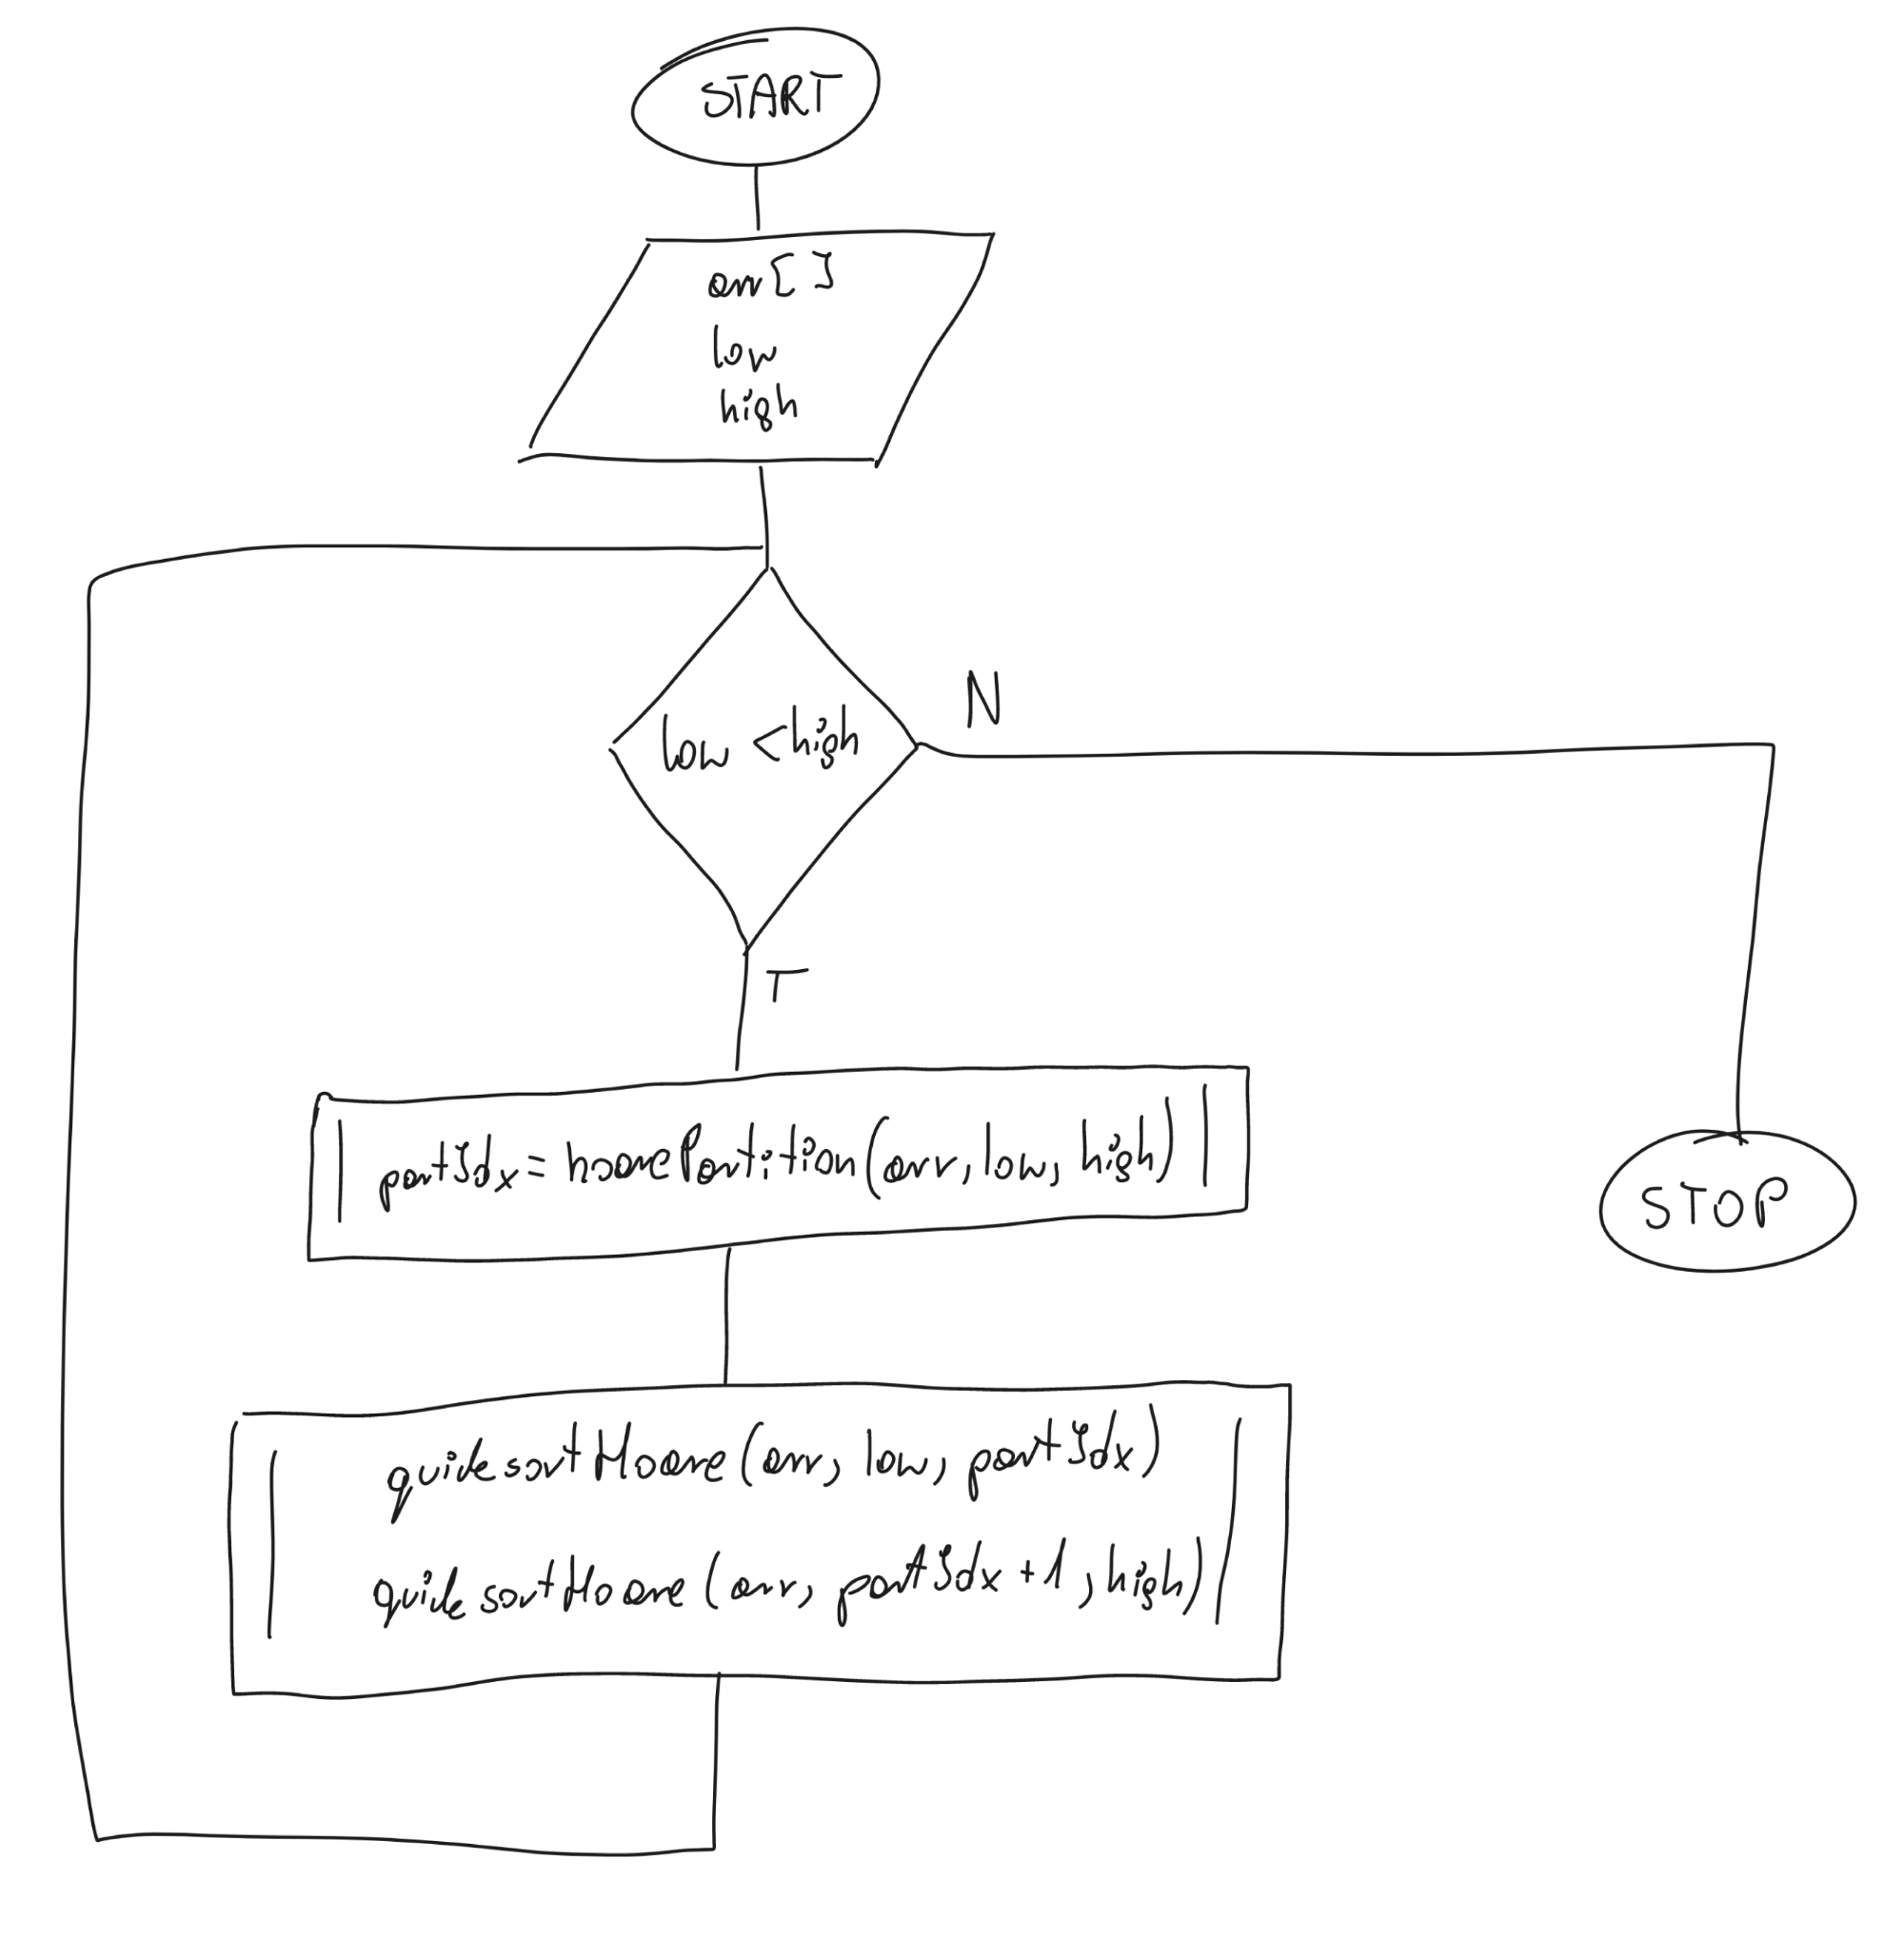 START
arr[]
low
high
low < high
N
T
partIdx = hoarePartition(arr, low, high)
STOP
quicksortHoare(arr, low, partIdx)
quicksortHoare(arr, partIdx+1, high)